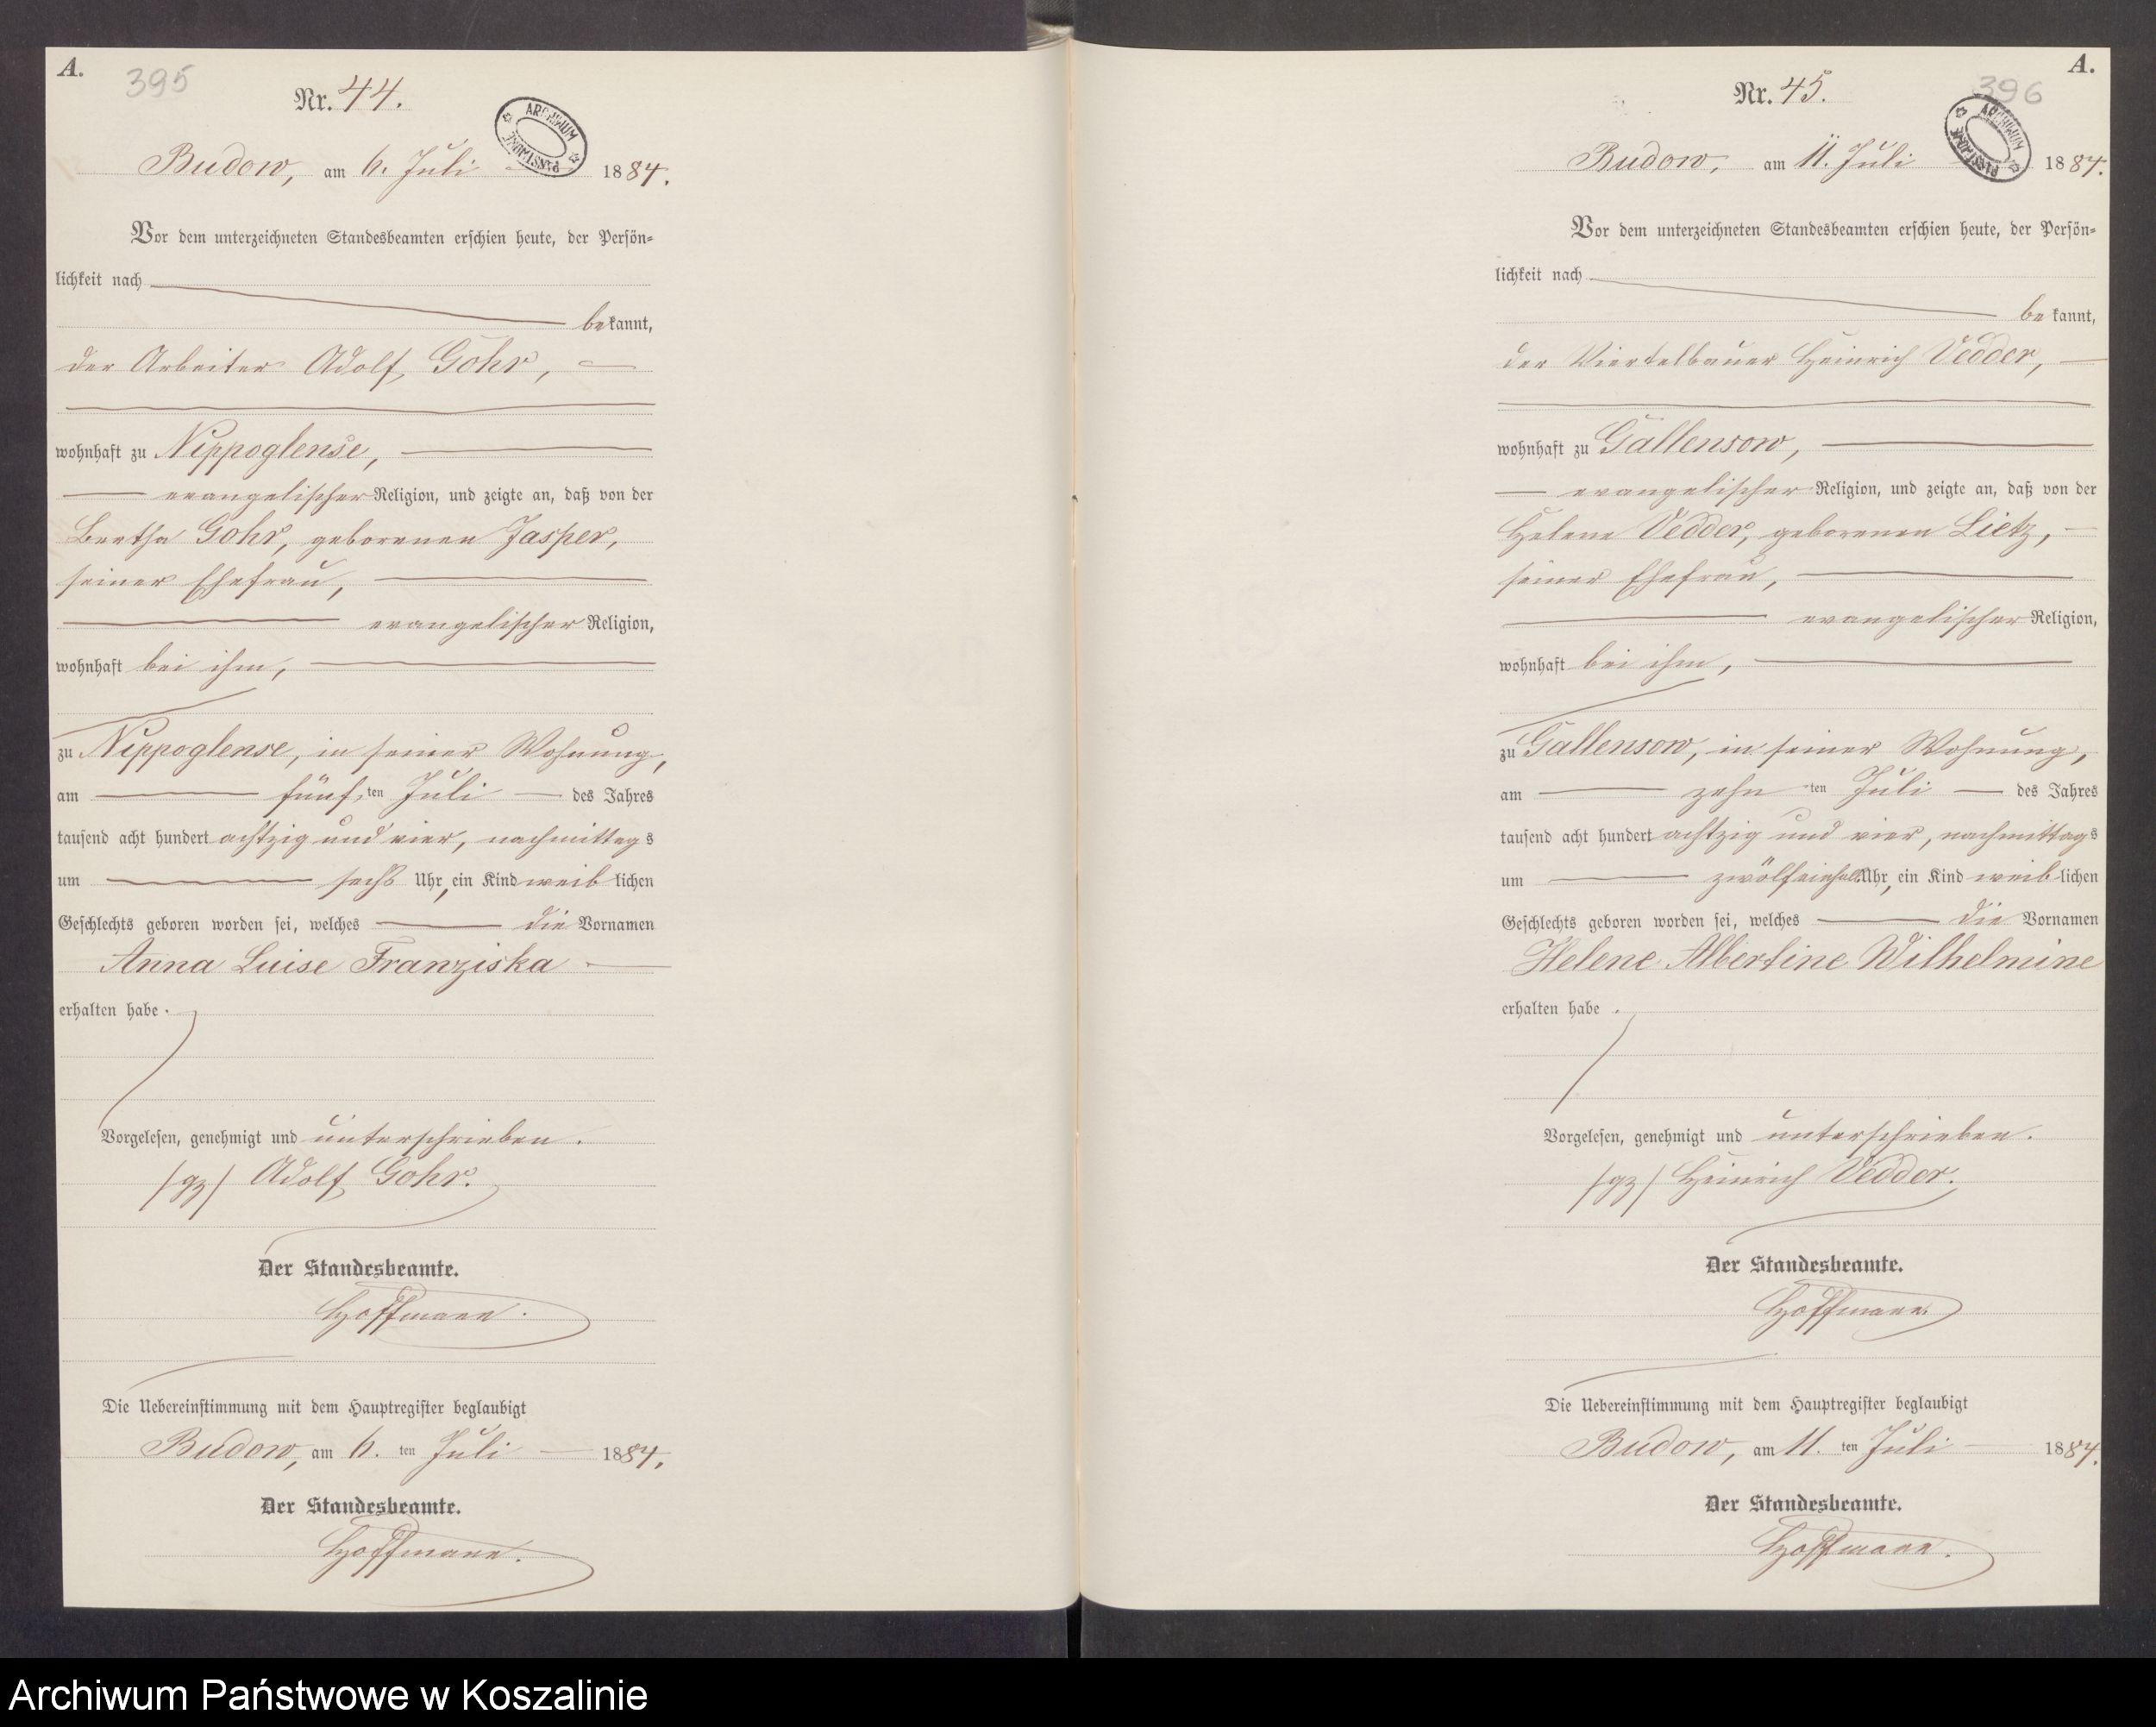 A.
395
Nr. 44.
ARCHIWUM PAŃSTWOWE
Budow, am 6. Juli 1884.
Vor dem unterzeichneten Standesbeamten erschien heute, der Persön=
lichkeit nach
bekannt,
der Arbeiter Adolf Gohr,
wohnhaft zu Nippoglense,
evangelischer Religion, und zeigte an, daß von der
Bertha Gohr, geborenen Jasper,
seiner Ehefrau,
evangelischer Religion,
wohnhaft bei ihm,
zu Nippoglense, in seiner Wohnung,
am fünf ten Juli des Jahres
tausend acht hundert achtzig und vier, nachmittags
um sechs Uhr, ein Kind weiblichen
Geschlechts geboren worden sei, welches die Vornamen
Anna Luise Franziska
erhalten habe.
Vorgelesen, genehmigt und unterschrieben.
/gz/ Adolf Gohr.
Der Standesbeamte.
Hoffmann.
Die Uebereinstimmung mit dem Hauptregister beglaubigt
Budow, am 6. ten Juli 1884.
Der Standesbeamte.
Hoffmann.
A.
396
Nr. 45.
ARCHIWUM PAŃSTWOWE
Budow, am 11. Juli 1884.
Vor dem unterzeichneten Standesbeamten erschien heute, der Persön=
lichkeit nach
bekannt,
der Viertelbauer Heinrich Vedder,
wohnhaft zu Gallensow,
evangelischer Religion, und zeigte an, daß von der
Helene Vedder, geborenen Lietz,
seiner Ehefrau,
evangelischer Religion,
wohnhaft bei ihm,
zu Gallensow, in seiner Wohnung,
am zehn ten Juli des Jahres
tausend acht hundert achtzig und vier, nachmittags
um zwölfeinhalb Uhr, ein Kind weiblichen
Geschlechts geboren worden sei, welches die Vornamen
Helene Albertine Wilhelmine
erhalten habe.
Vorgelesen, genehmigt und unterschrieben.
/gz/ Heinrich Vedder.
Der Standesbeamte.
Hoffmann.
Die Uebereinstimmung mit dem Hauptregister beglaubigt
Budow, am 11. ten Juli 1884.
Der Standesbeamte.
Hoffmann.
Archiwum Państwowe w Koszalinie